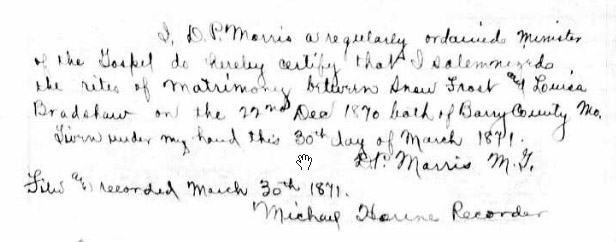 I, D.P. Morris a regularly ordained Minister
of the Gospel do hereby certify that I solemnized
the rites of matrimony between Snow Frost & Louisa
Bradshaw on the 22nd Dec 1870 both of Barry County Mo.
Given under my hand this 30th day of March 1871.
D.P. Morris M.G.
Filed & recorded March 30th 1871.
Michael Horine Recorder